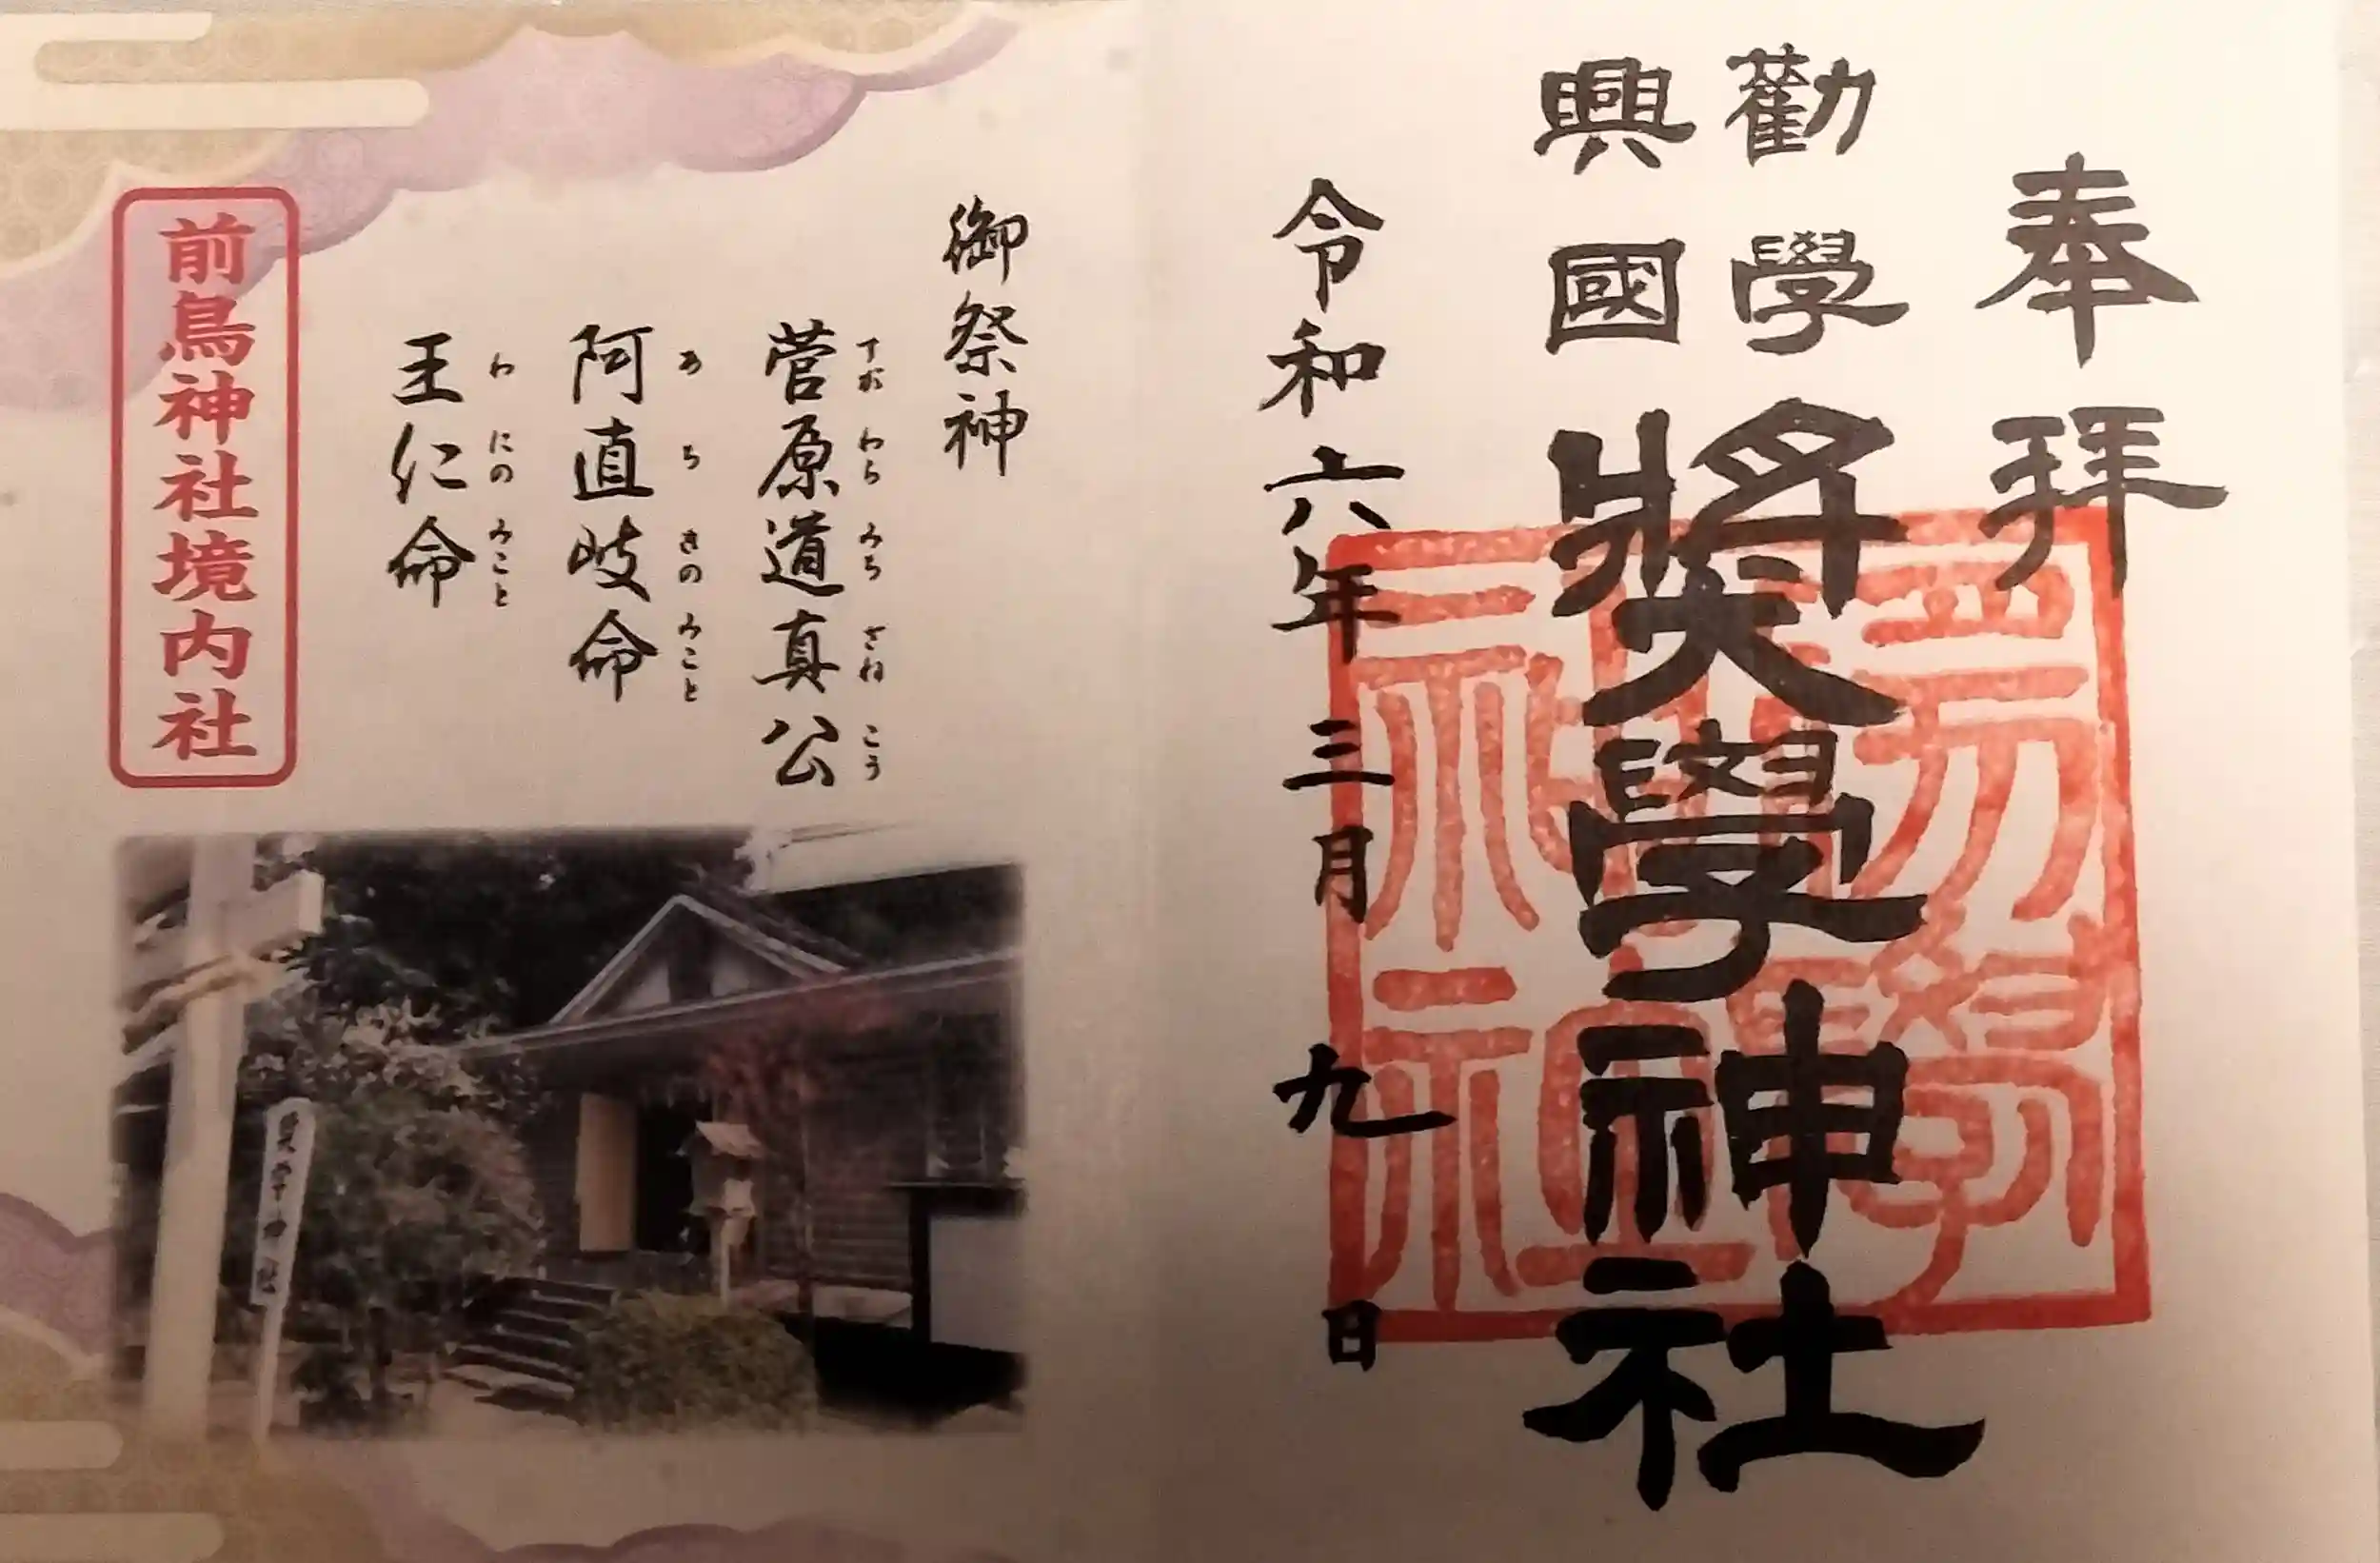 奉拝
勸學
興國
奬學神社
令和六年三月九日
御祭神
菅原道真公
すがわらみちざねこう
阿直岐命
あちきのみこと
王仁命
わにのみこと
前鳥神社境内社
奨学神社